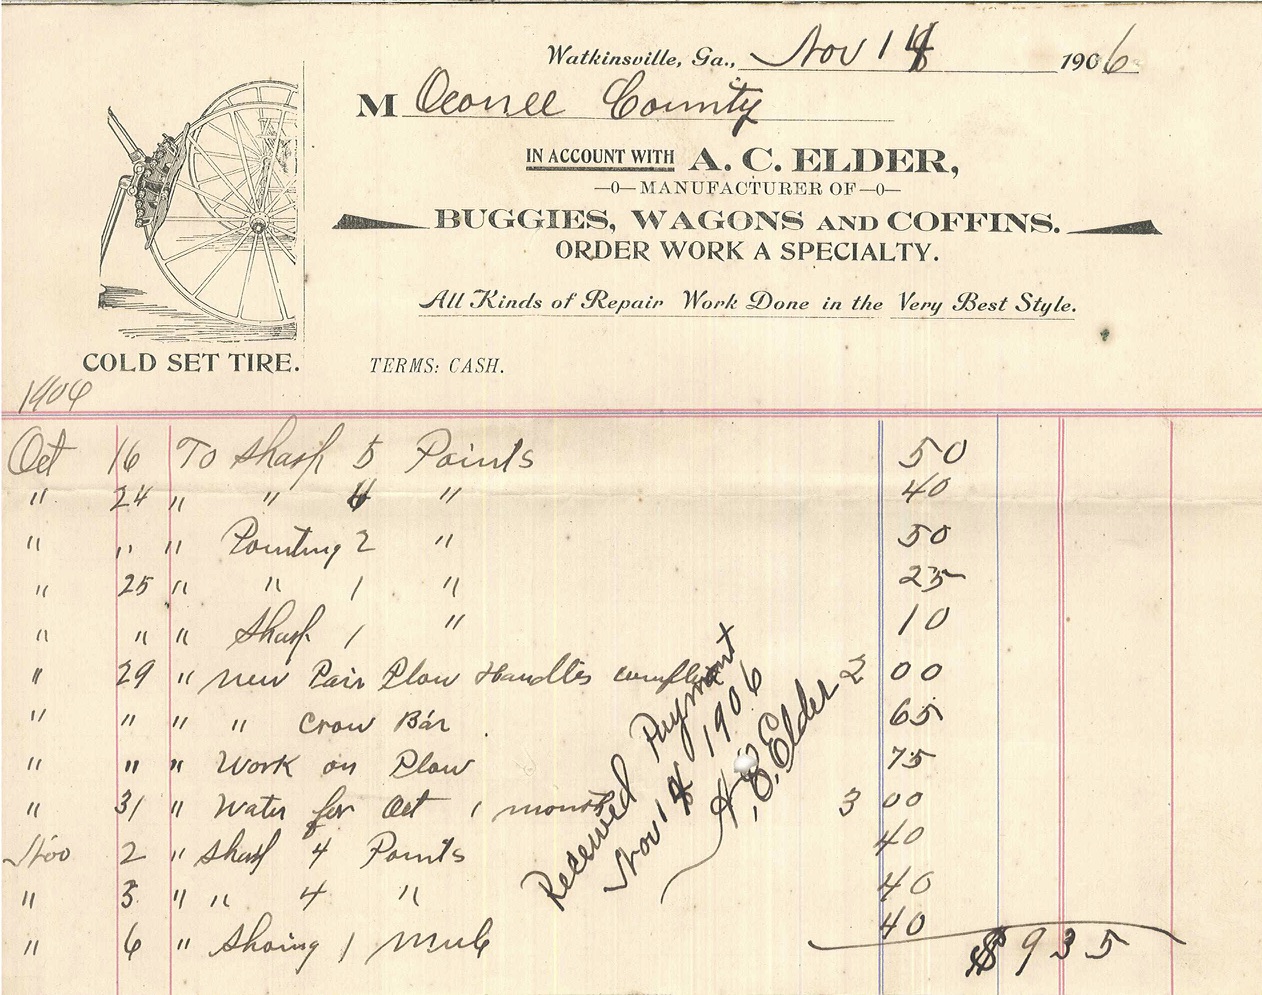 Watkinsville, Ga., Nov 14 1906
M Oconee County
IN ACCOUNT WITH A. C. ELDER,
—0—MANUFACTURER OF—0—
BUGGIES, WAGONS AND COFFINS.
ORDER WORK A SPECIALTY.
All Kinds of Repair Work Done in the Very Best Style.
COLD SET TIRE.
TERMS: CASH.
1906
Oct 16 To Sharp 5 Points 50
" 24 " " 4 " 40
" " " Pointing 2 " 50
" 25 " " 1 " 25
" " " Sharp 1 " 10
" 29 " New Pair Plow Handles complete 2 00
" " " " Crow Bar 65
" " " Work on Plow 75
" 31 " Water for Oct 1 month 3 00
Nov 2 " Sharp 4 Points 40
" 5 " " 4 " 40
" 6 " Shoing 1 Mule 40
$ 935
Received Payment
Nov 14 1906
Elder